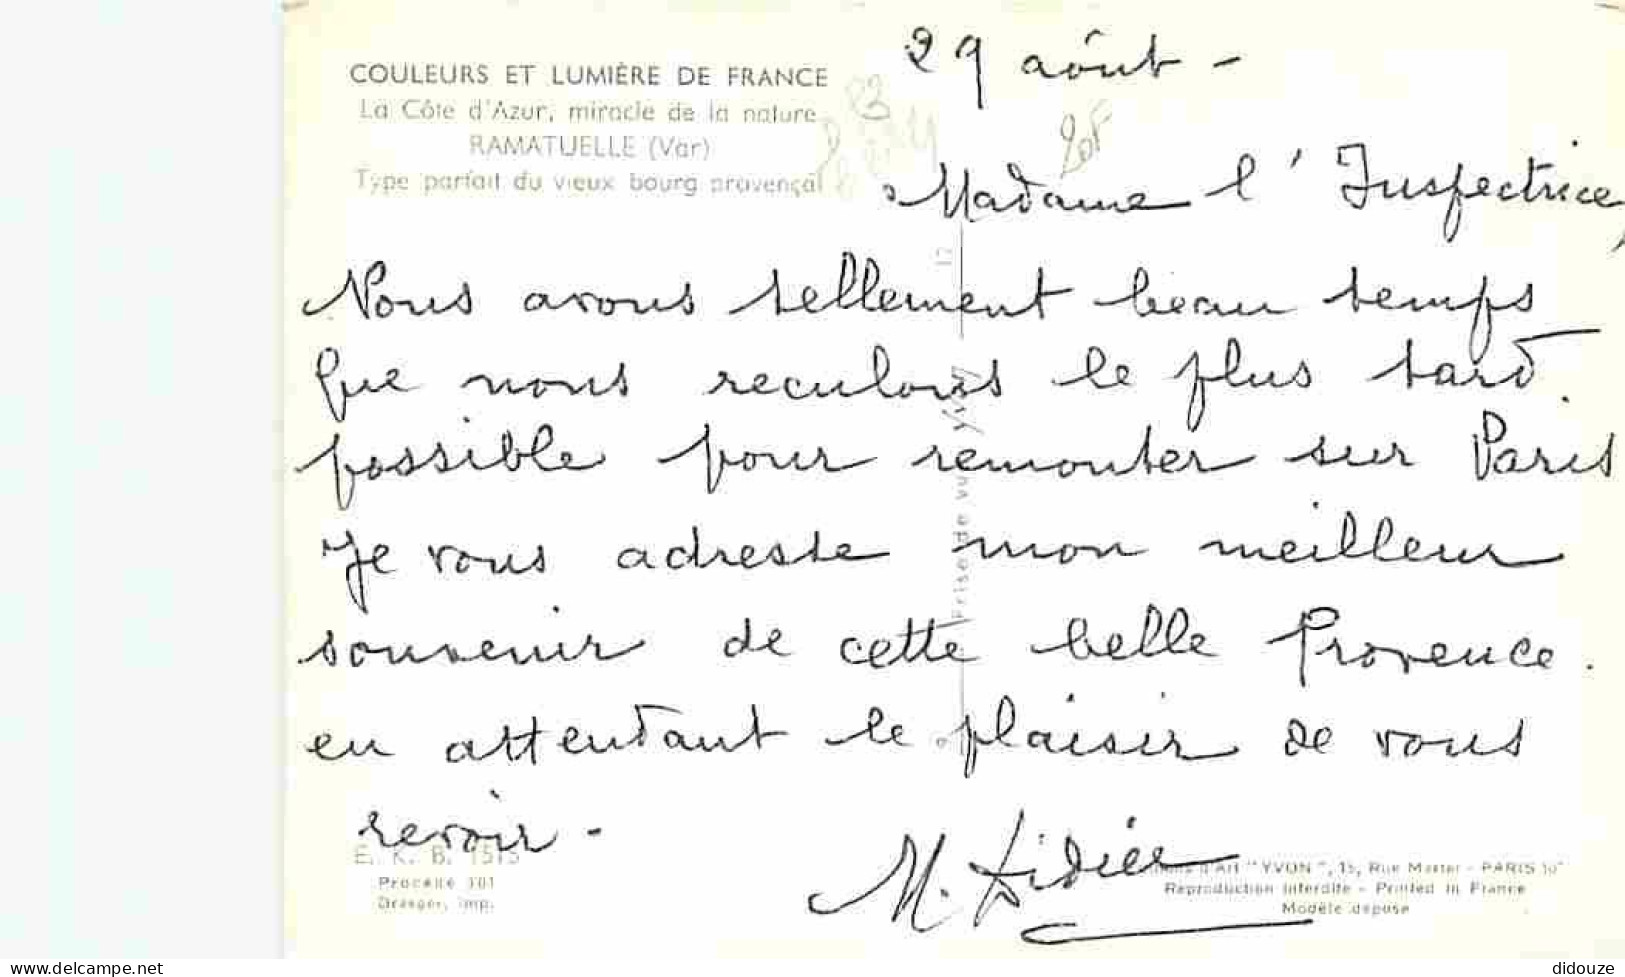 COULEURS ET LUMIÈRE DE FRANCE
La Côte d'Azur, miracle de la nature
RAMATUELLE (Var)
Type parfait du vieux bourg provençal
29 aôut -
83
20F
Madame l'Inspectrice,
Nous avons tellement beau temps
que nous reculons le plus tard
possible pour remonter sur Paris
Je vous adresse mon meilleur
souvenir de cette belle Provence.
en attendant le plaisir de vous
revoir -
M. Didier
12
Prise de vue Yvon
E. K. B. 1515
Procédé 301
Draeger, imp.
d'Art "YVON", 15, Rue Martel - PARIS 10e
Reproduction interdite - Printed in France
Modèle déposé
www.delcampe.net
didouze